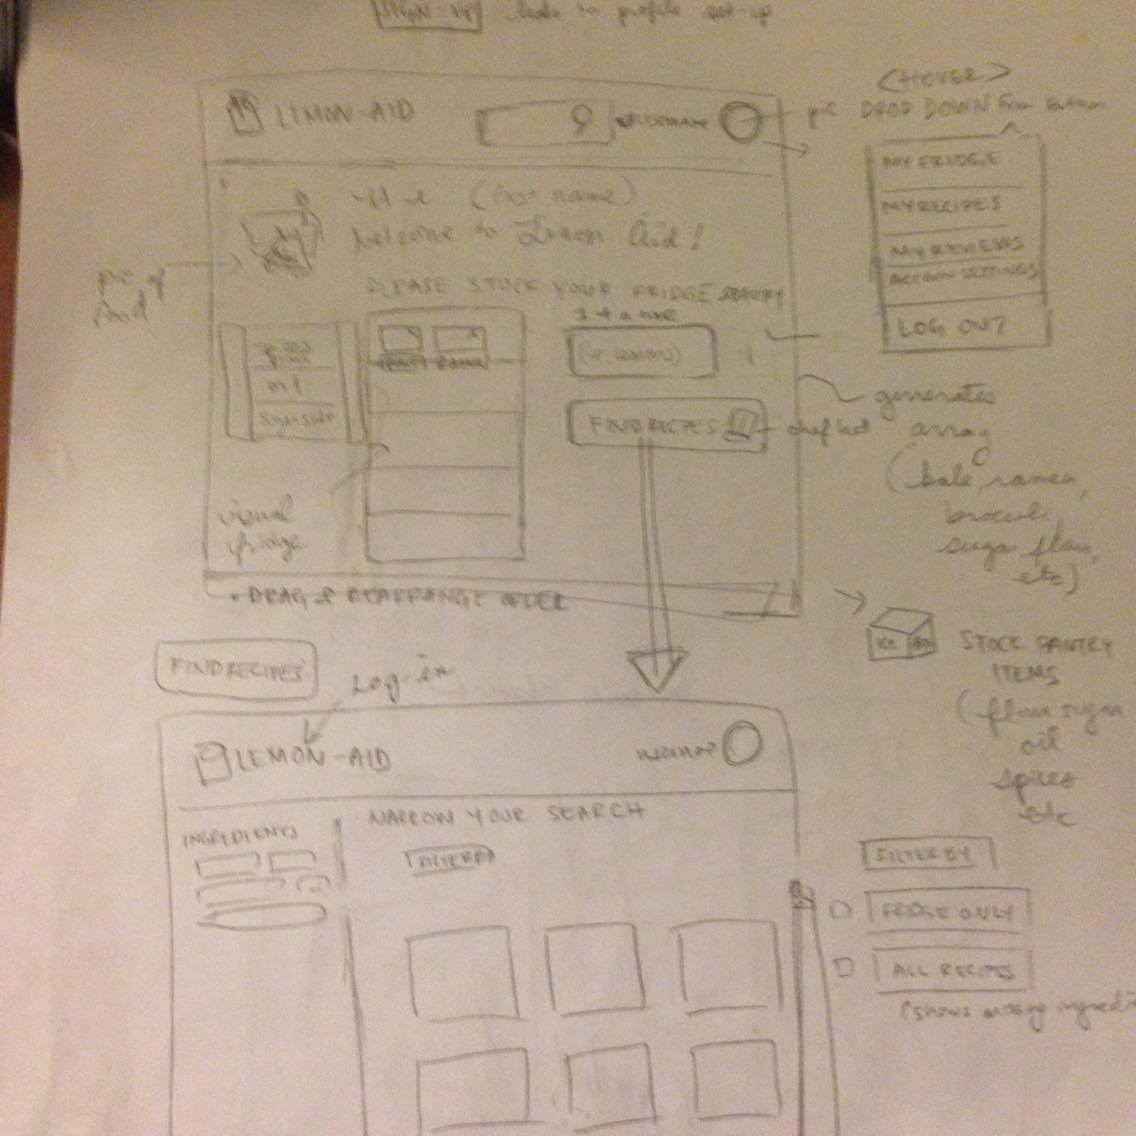 SIGN-UP leads to profile set-up
<HOVER>
LEMON-AID
username
pic DROP DOWN from button
MY FRIDGE
MY RECIPES
MY REVIEWS
ACCOUNT SETTINGS
LOG OUT
(first name)
Welcome to Lemon Aid!
pic of
food
PLEASE STOCK YOUR FRIDGE PANTRY
oil
FIND RECIPES
chef hat
visual
fridge
generates
array
(kale, ramen,
brocoli
sugar, flour,
etc)
• DRAG & REARRANGE AFTER
STOCK PANTRY
ITEMS
(flour sugar
oil
spices
etc
FIND RECIPES
Log-in
LEMON-AID
username
INGREDIENTS
NARROW YOUR SEARCH
FILTER BY
FILTER BY
FRIDGE ONLY
ALL RECIPES
(shows missing ingredi